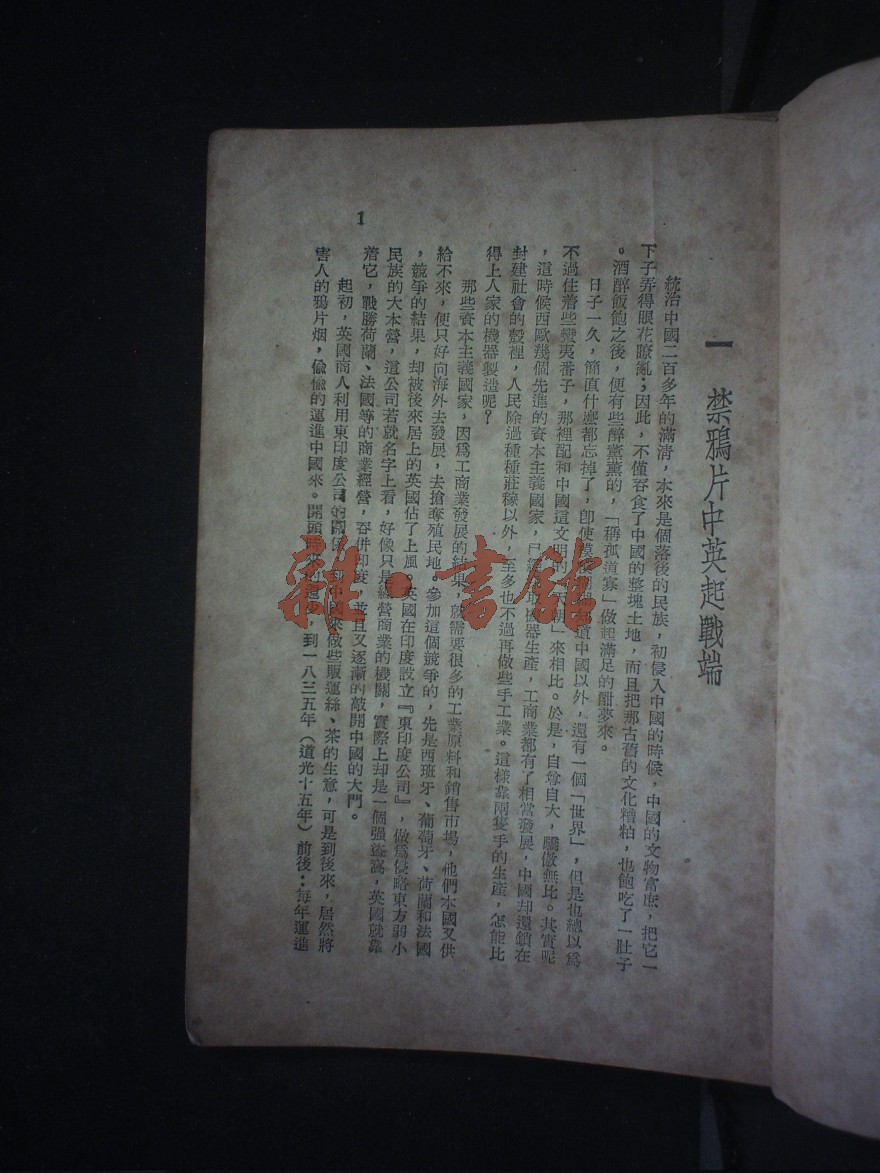 一　禁鴉片中英起戰端
統治中國二百多年的滿清，本來是個落後的民族，初侵入中國的時候，中國的文物富庶，把它一
下子弄得眼花瞭亂；因此，不僅吞食了中國的整塊土地，而且把那古舊的文化糟粕，也飽吃了一肚子
。酒醉飯飽之後，便有些醉薰薰的，「稱孤道寡」做起滿足的酣夢來。
日子一久，簡直什麼都忘掉了，卽使 道中國以外，還有一個「世界」，但是也總以爲
不過住着些蠻夷番子，那裡配和中國這文明的「天朝」來相比。於是，自尊自大，驕傲無比。其實呢
，這時候西歐幾個先進的資本主義國家，已 機器生產，工商業都有了相當發展，中國却還鎖在
封建社會的殼裡，人民除過種種莊稼以外，至多也不過再做些手工業。這樣靠兩隻手的生產，怎能比
得上人家的機器製造呢？
那些資本主義國家，因爲工商業發展的結果，就需要很多的工業原料和銷售市場，他們本國又供
給不來，便只好向海外去發展，去搶奪殖民地。參加這個競爭的，先是西班牙、葡萄牙、荷蘭和法國
，競爭的結果，却被後來居上的英國佔了上風。英國在印度設立『東印度公司』，做爲侵略東方弱小
民族的大本營，這公司若就名字上看，好像只是經營商業的機關，實際上却是一個强盜窩，英國就靠
着它，戰勝荷蘭、法國等的商業經營，吞併印度，並且又逐漸的敲開中國的大門。
起初，英國商人利用東印度公司的關係，到中國來做些販運絲、茶的生意，可是到後來，居然將
害人的鴉片烟，偸偸的運進中國來。開頭時來的還少，到一八三五年（道光十五年）前後：每年運進
1
雜·書館